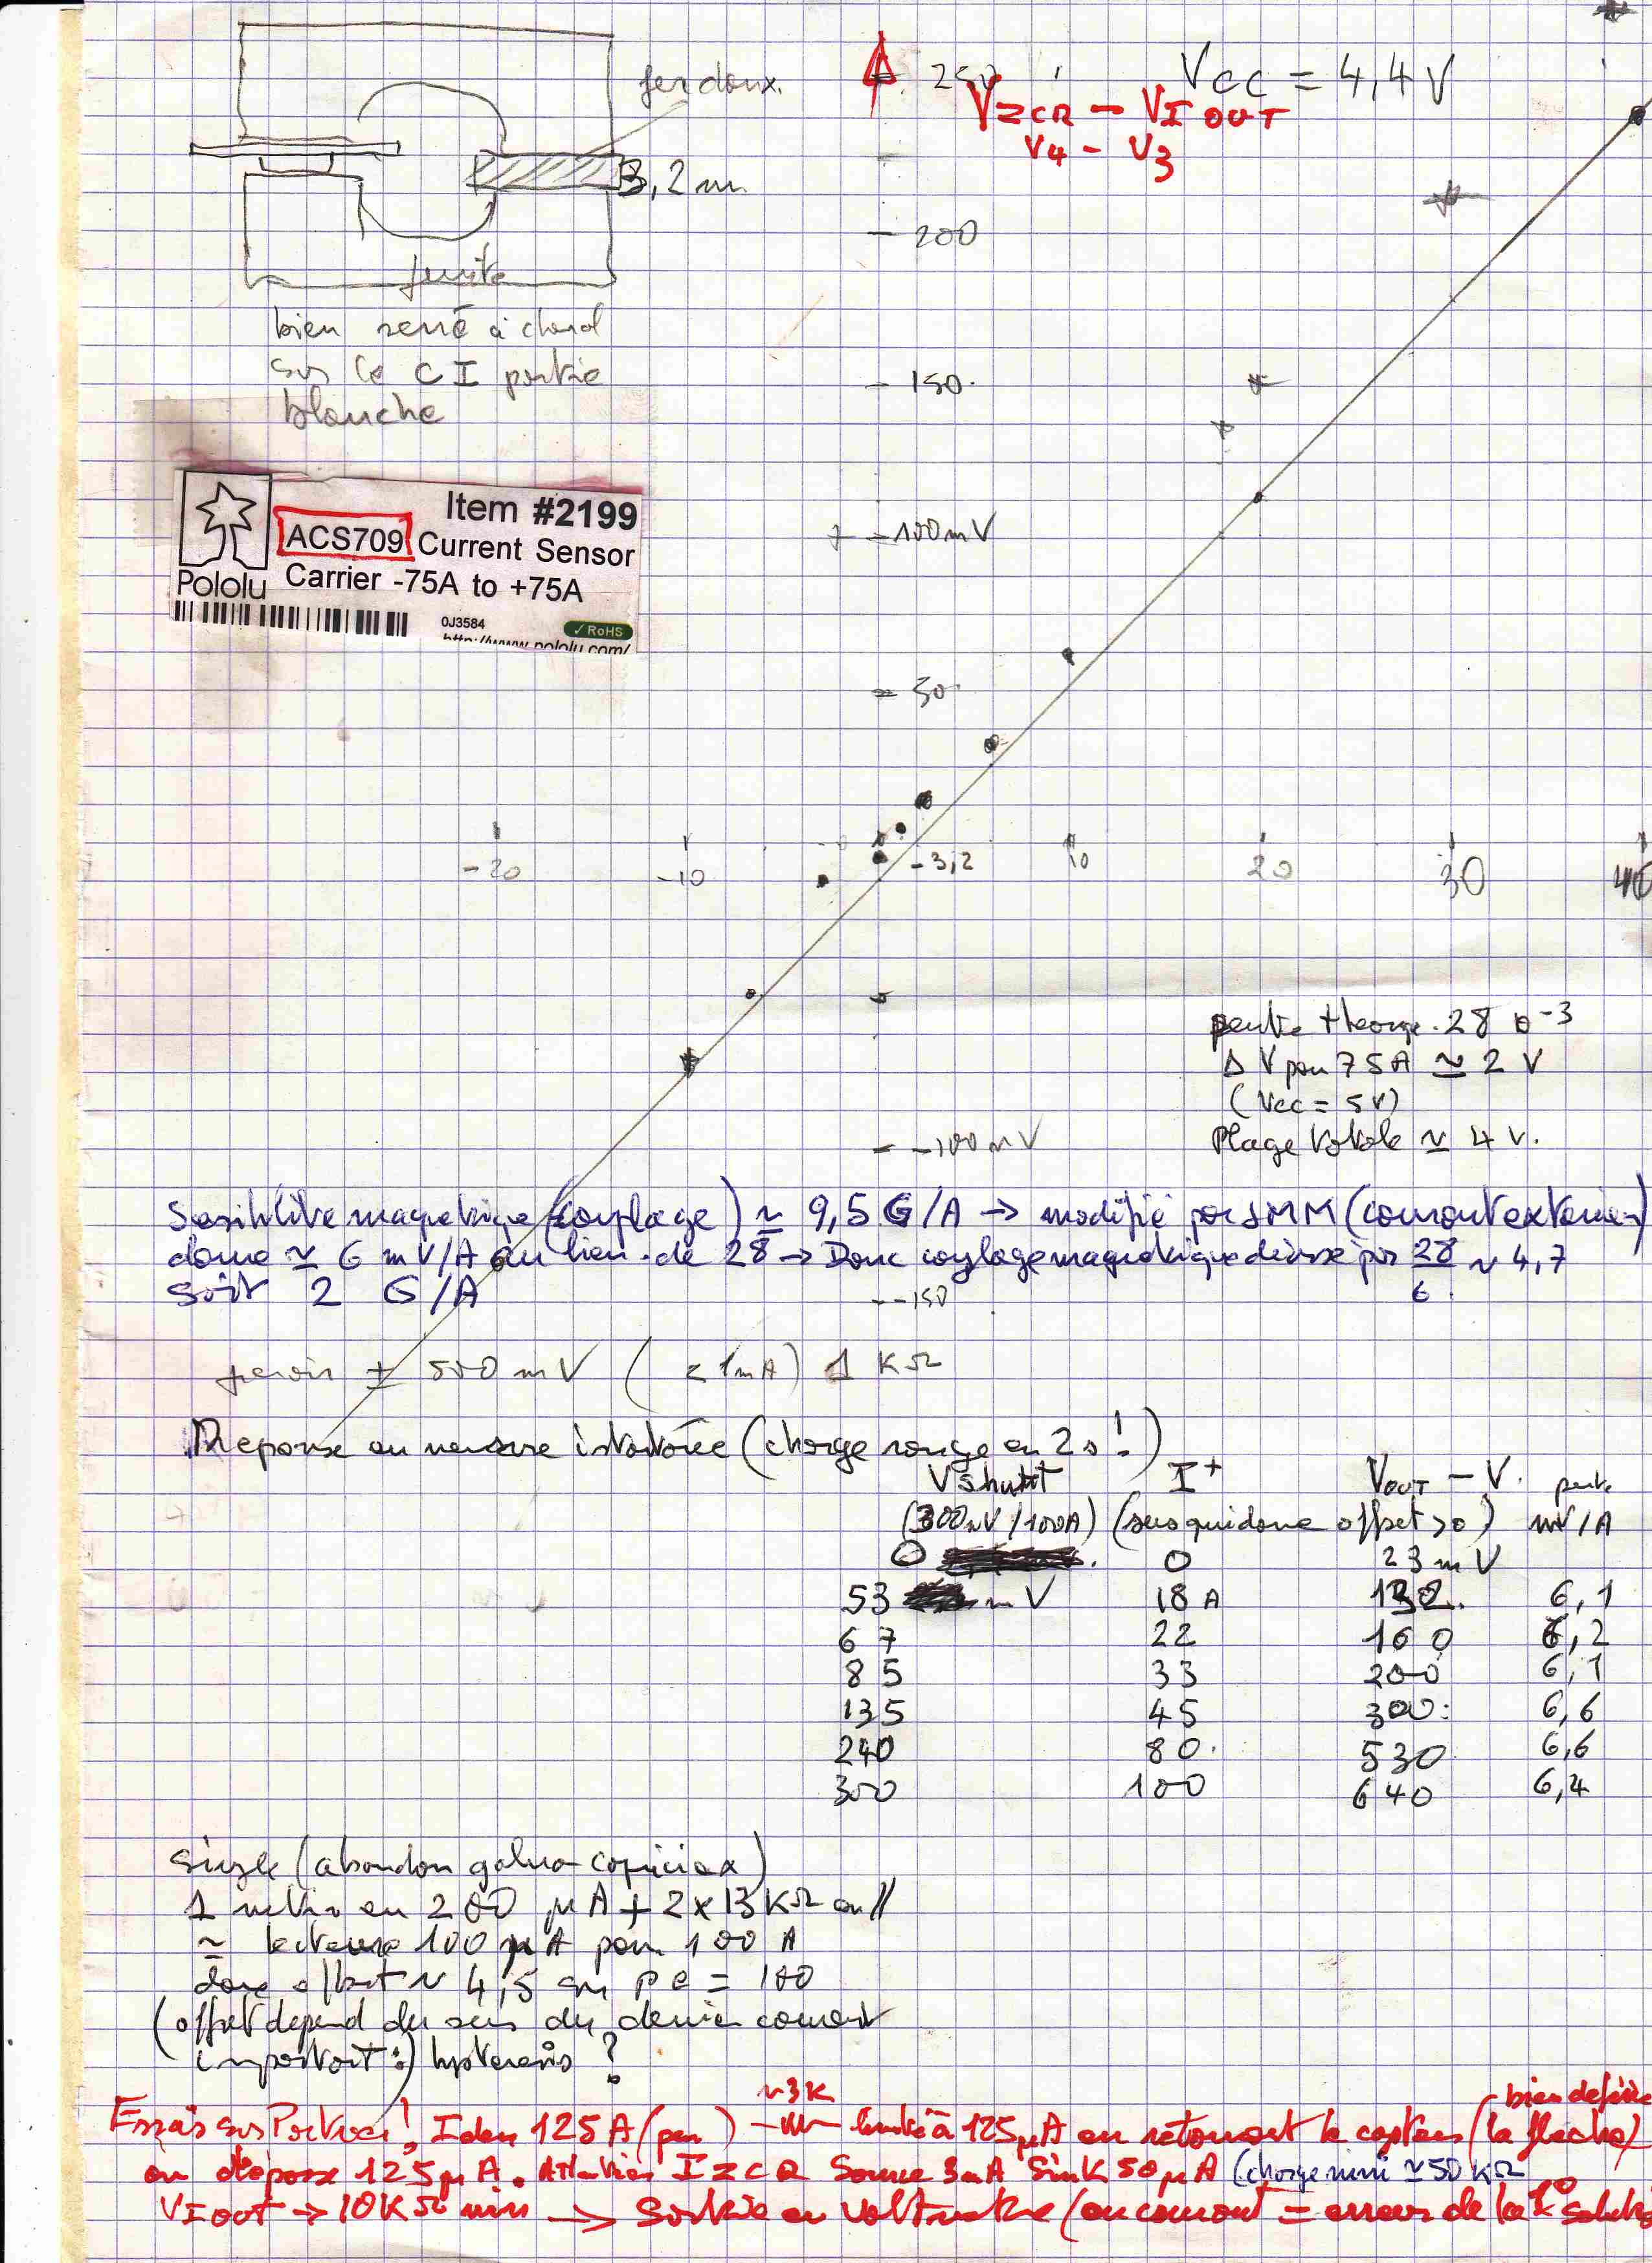 fer doux.
3,2 m
bien serré à chaud
sur le CI partie
blanche
Item #2199
ACS709 Current Sensor
Carrier -75A to +75A
Pololu
0J3584
RoHS
http://www.pololu.com/
250
Vcc = 4,4V
VZCR - VIOUT
V4 - V3
200
150
100mV
50
-20
-10
-3,2
10
20
30
40
-100mV
-150
pente theorique 28 10-3
Δ V pour 75A ≃ 2 V
(Vcc = 5V)
Plage totale ≃ 4 V.
Sensibilité magnetique (couplage) ≃ 9,5 G/A → modifié par (courant exterieur)
donne ≃ 6 mV/A au lieu de 28 → Donc couplage magnetique divisé par 28/6 ~ 4,7
Soit 2 G/A
± 550 mV ( 1mA) 1 KΩ
Reponse en mesure instantanée (charge rouge en 2s !)
Vshunt I+ VOUT - V. pente
(300mV/100A) (sens qui donne offset >0) mV/A
0 0 23mV
53 mV 18 A 132. 6,1
67 22 160 6,2
85 33 200 6,1
135 45 300 6,6
240 80 530 6,6
300 100 640 6,4
(abandon galva capricieux)
1 en 200 µA + 2x13KΩ en //
≃ lecteur 100 µA pour 100 A
donc offset ~ 4,5 sur PE = 100
(offset depend du sens du dernier courant
important :) hysteresis ?
~3K
bien definie
Essais sur ! I dem 125A (peu) limité à 125µA en retournant le capteur (la fleche)
on depasse 125µA. Attention IZCR Source 3mA Sink 50µA (charge mini ≃ 50 KΩ
VIOUT → 10KΩ min → Sortie en voltmetre (en courant = erreur de la 1°